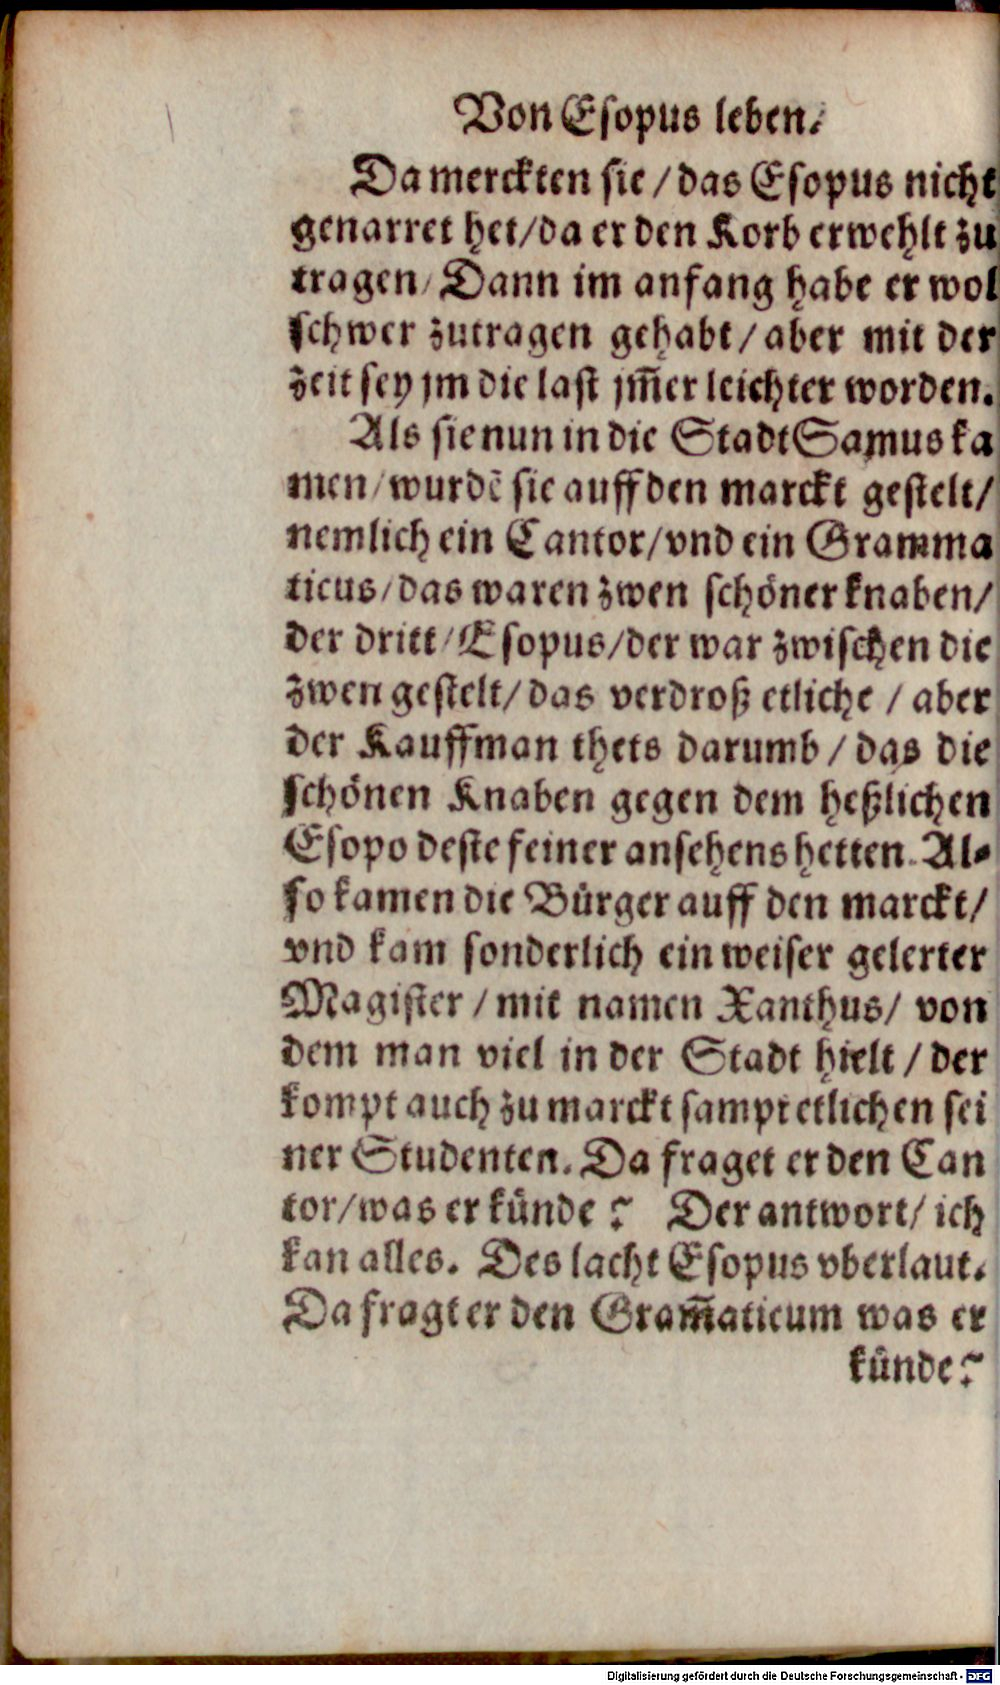 Von Esopus leben.
Da merckten sie / das Esopus nicht
genarret het/da er den Korb erwehlt zu
tragen/ Dann im anfang habe er wol
schwer zutragen gehabt / aber mit der
zeit sey jm die last jm̃er leichter worden.
Als sie nun in die Stadt Samus ka
men/wurdẽ sie auff den marckt gestelt/
nemlich ein Cantor/vnd ein Gramma
ticus/das waren zwen schöner knaben/
der dritt/Esopus/der war zwischen die
zwen gestelt/ das verdroß etliche / aber
der Kauffman thets darumb / das die
schönen Knaben gegen dem heßlichen
Esopo deste feiner ansehens hetten. Al-
so kamen die Bürger auff den marckt/
vnd kam sonderlich ein weiser gelerter
Magister / mit namen Xanthus/ von
dem man viel in der Stadt hielt / der
kompt auch zu marckt sampt etlichen sei
ner Studenten. Da fraget er den Can
tor/was er künde? Der antwort/ ich
kan alles. Des lacht Esopus vberlaut.
Da fragt er den Gram̃aticum was er
künde?
Digitalisierung gefördert durch die Deutsche Forschungsgemeinschaft - DFG